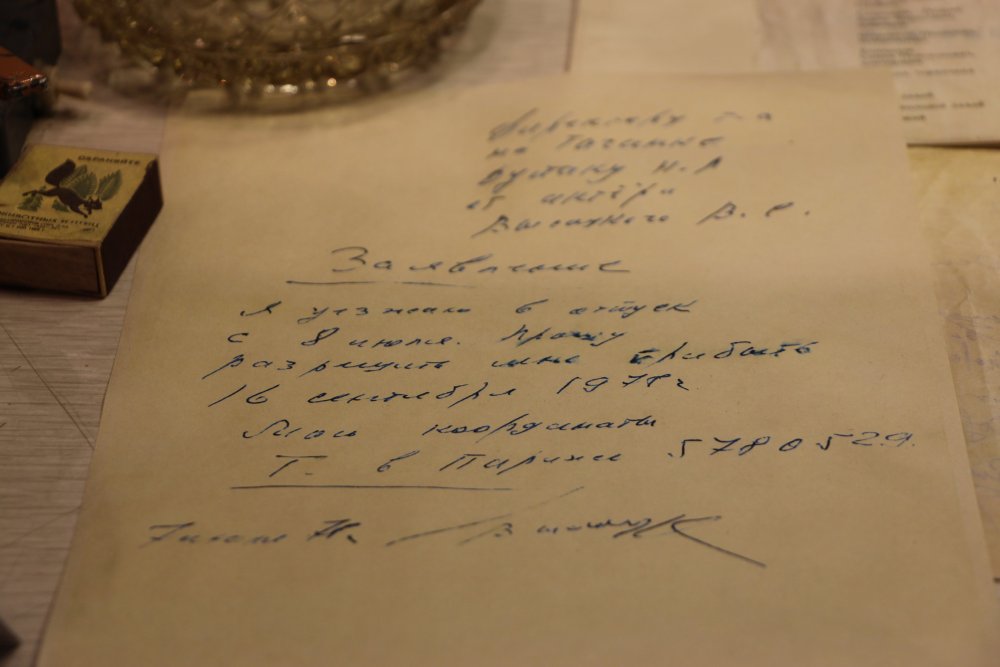 Директору т-а
на Таганке
Дупаку Н.А
от актёра
Высоцкого В. С.
Заявление
Я уезжаю в отпуск
с 8 июля. Прошу
разрешить мне прибыть
16 сентября 1978 г.
Мои координаты
Т. в Париже 5780529.
7 июля 78.
ОХРАНЯЙТЕ